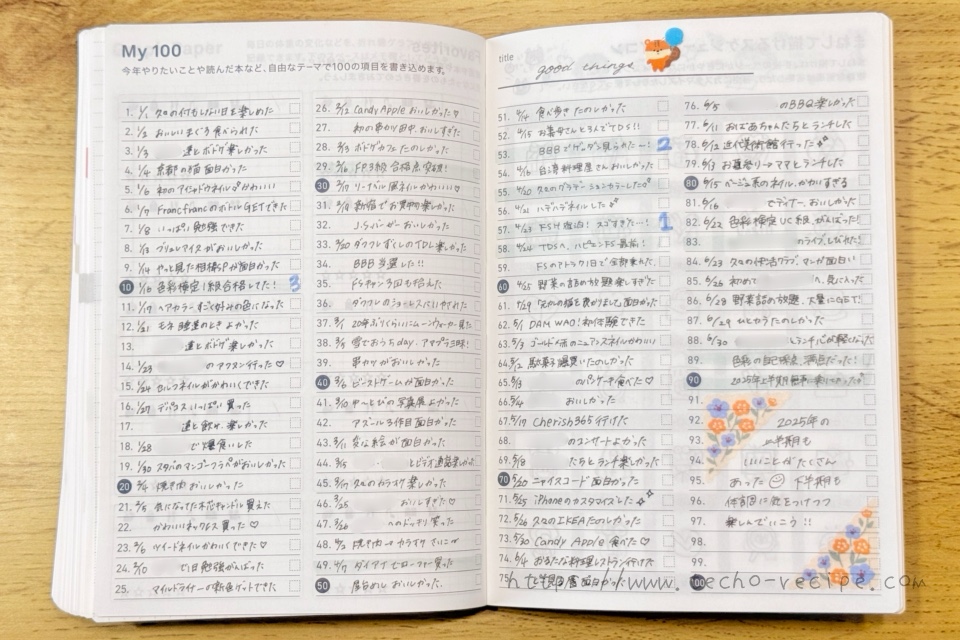 My 100
今年やりたいことや読んだ本など、自由なテーマで100の項目を書き込めます。
1. 1/1 久々の何もしない日を楽しめた
2. 1/2 おいしいまぐろ食べられた
3. 1/3 達とボドゲ楽しかった
4. 1/4 京都の猫面白かった
5. 1/6 初のアイシャドウネイルかわいい
6. 1/7 FrancfrancのボトルGETできた
7. 1/8 いっぱい勉強できた
8. 1/13 ブリュレアイスがおいしかった
9. 1/14 やっと見た相棒SPが面白かった
10 1/16 色彩検定1級合格してた! 3
11. 1/17 ヘアカラーすごく好みの色になった
12. 1/21 モネ 睡蓮のとき よかった
13. 達とボドゲ楽しかった
14. 1/23 のアクスタ行った♡
15. 1/24 セルフネイルがかわいくできた
16. 1/27 デパコスいっぱい買った
17. 達と飲み、楽しかった
18. 1/28 で爆食いした
19. 1/30 スタバのマンゴーフラペがおいしかった
20 2/4 焼き肉おいしかった
21. 2/5 気になってた木芯キャンドル買えた
22. かわいいネックレス買った♡
23. 2/6 ツイードネイルかわいくできた♡
24. 2/10 で1日勉強がんばった
25. マイルドライナーの新色ゲットできた
26. 2/12 Candy Apple おいしかった♡
27. 初の串カツ田中、おいしすぎた
28. 2/13 ボドゲカフェたのしかった
29. 2/16 FP3級合格点突破!
30 2/17 リーガペイル風ネイルかわいい♡
31. 2/18 新宿でお買物楽しかった
32. J.S.バーガーおいしかった
33. 2/20 ダクファすくしのTDL楽しかった
34. BBB当選した!!
35. FSチャン3枚も拾えた
36. ダウンのショッパーいただけた
37. 3/1 20年ぶりくらいにムーンウォーカー見た
38. 3/5 雪でおうちday. アマプラ三昧!
39. 串カツがおいしかった
40 3/6 ビーストゲームが面白かった
41. 3/10 中へとびの写真展よかった
42. アズール3作目面白かった
43. 3/11 変な絵が面白かった
44. 3/15 とビデオ通話楽しかった
45. 3/17 久々のカラオケ楽しかった
46. 3/25 おいしすぎた♡
47. 3/26 へのドッキリ笑った
48. 4/2 焼き肉→カラオケ たのしー
49. 4/7 ダイアナ ヒーローファー買った
50 唐揚めし おいしかった。
title
good things
51. 4/14 食べ歩きたのしかった
52. 4/15 お義母さんと3人でTDS!!
53. BBBでゲッダン見られたー! 2
54. 4/16 台湾料理屋さんおいしかった
55. 4/20 久々のグラデーションカラーした
56. 4/21 ハデハデネイルした
57. 4/23 FSH宿泊! スゴすぎた…! 1
58. 4/24 TDSへ、ハピエンFS最高!
59. FSのアトラク1日で全部乗れた
60 4/25 野菜の詰め放題楽しすぎた
61. 4/29 「先代の猫を最かりました」面白かった
62. 5/1 DAM WAO! 初体験できた
63. 5/3 ゴールド系のニュアンスネイルかわいい
64. 5/2 駄菓子爆買いたのしかった
65. 5/3 のパンケーキ食べた♡
66. 5/4 おいしかった
67. 5/17 Cherish365 行けた
68. のコンサートよかった
69. 5/18 たちとランチ楽しかった
70 5/21 ニャイスコード面白かった
71. 5/25 iPhoneのカスタマイズした
72. 5/26 久々のIKEAたのしかった
73. 5/30 Candy Apple食べた♡
74. 6/4 おるたな料理レストラン行けた
75. 七つ屋 面白かった
76. 6/5 のBBQ楽しかった
77. 6/11 おばあちゃんたちとランチした
78. 6/12 近代美術館行った
79. 6/13 お墓参り→ママとランチした
80 6/15 ベージュ系のネイル、かわいすぎる
81. 6/16 でディナー、おいしかった
82. 6/22 色彩検定UC級、がんばった!
83. のライブ、しびれた!
84. 6/23 久々の部活クラブ、マンガ面白い
85. 6/26 初めて へ、気に入った
86. 6/28 野菜詰め放題、大量にGET!
87. 6/29 ひとカラたのしかった
88. 6/30 とランチ 心が軽くなった
89. 色彩の自己採点、満点だった!
90 2025年上半期 無事に楽しめた
91.
92. 2025年の
93. 上半期も
94. いいことがたくさん
95. あった 下半期も
96. 体調に気をつけつつ
97. 楽しんでいこう!!
98.
99.
100
http://www.echo-recipe.com